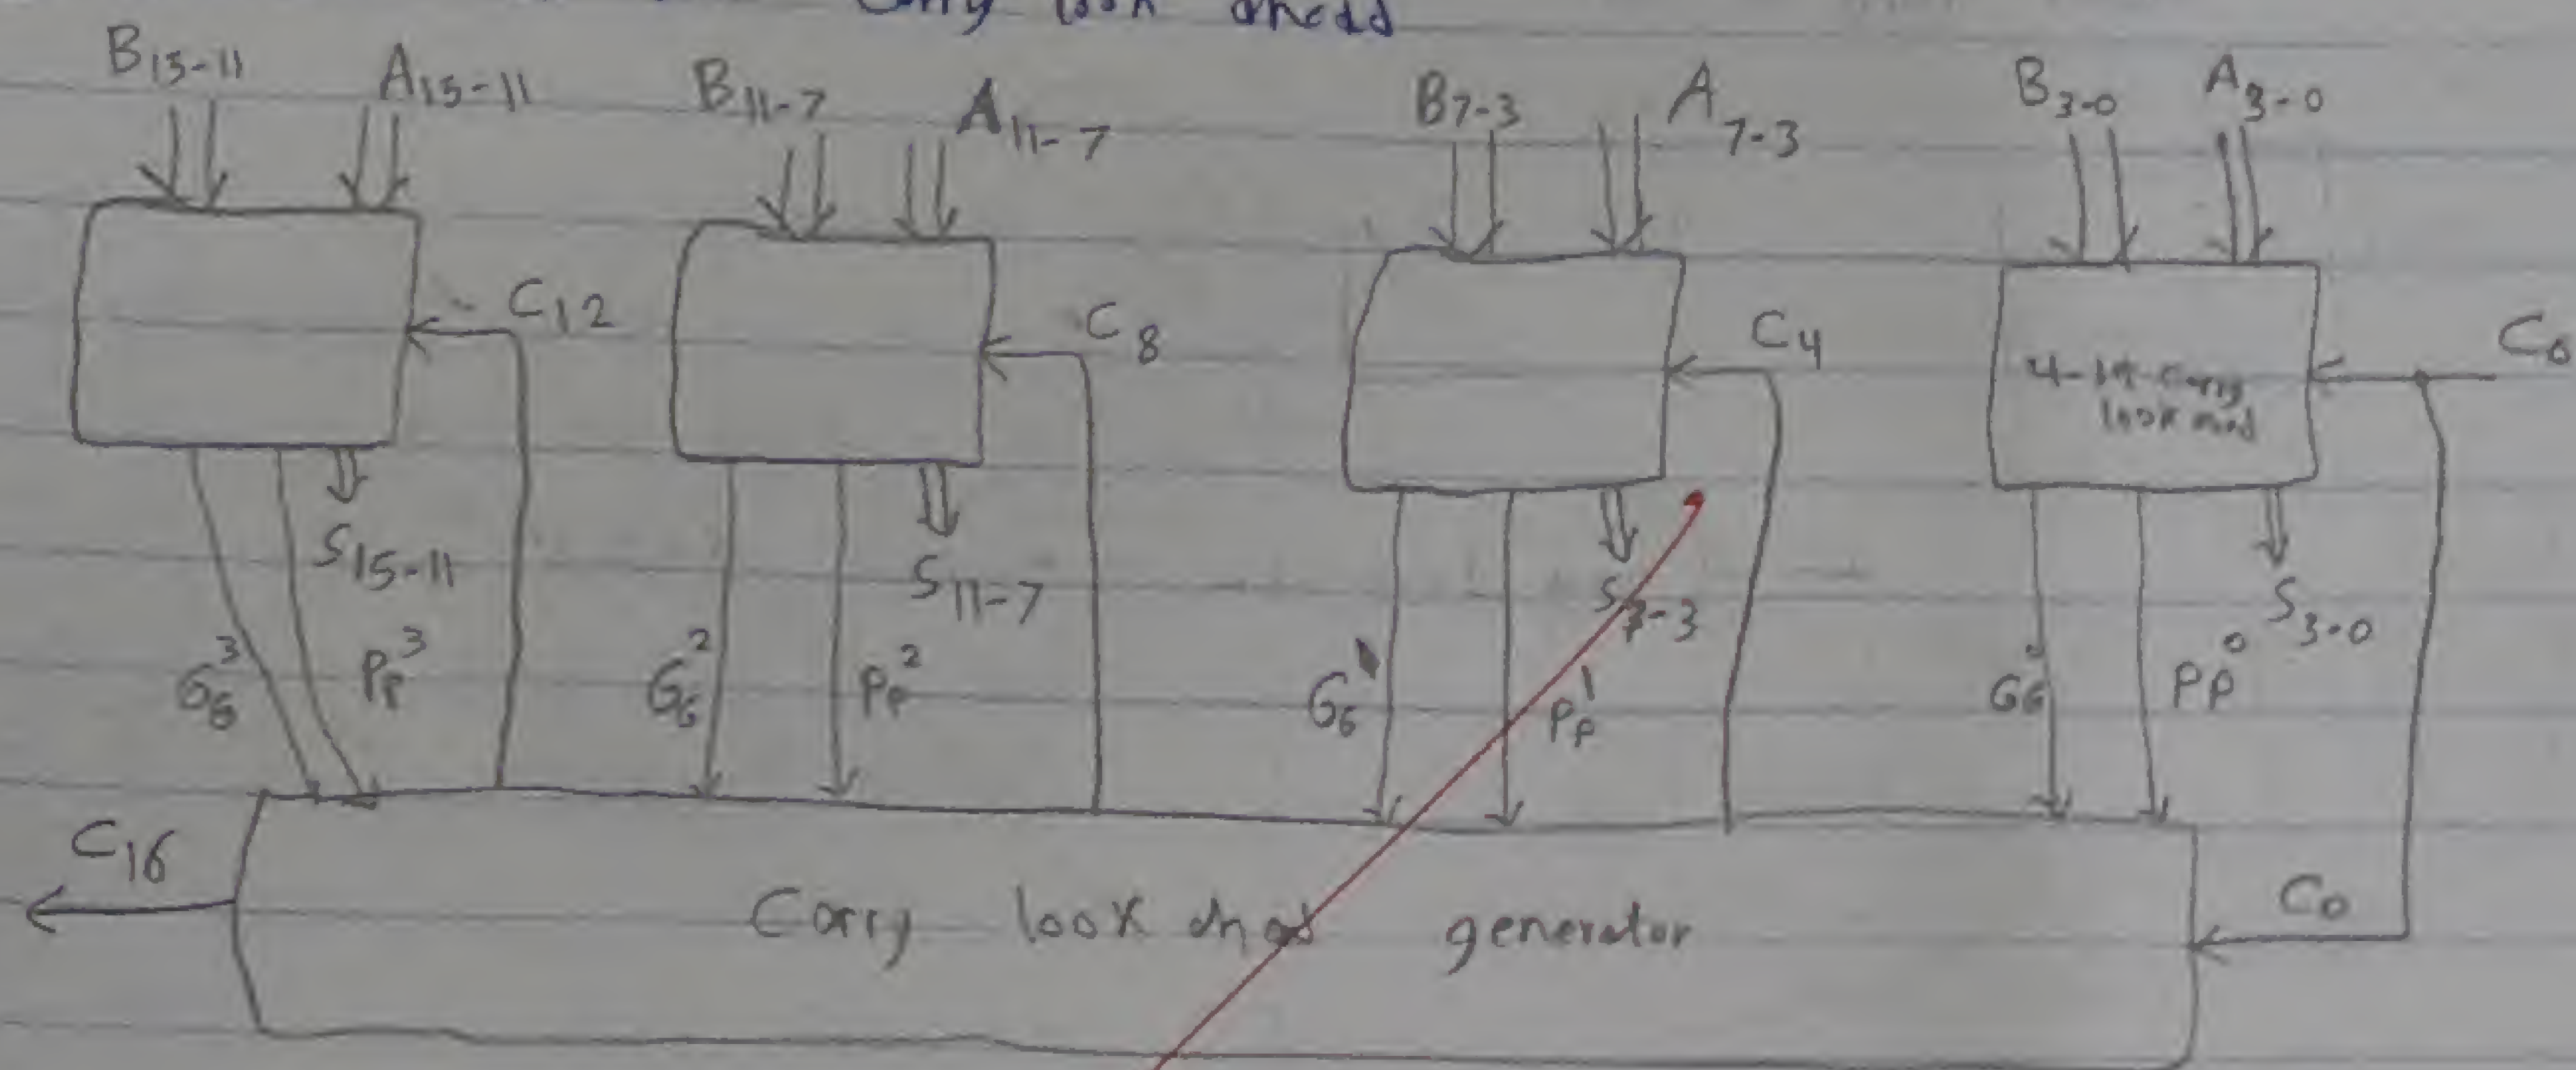 Carry look ahead
B15-11 A15-11 B11-7 A11-7 B7-3 A7-3 B3-0 A3-0
C12 C8 C4 C0
4-bit carry
look ahead
S15-11 S11-7 S7-3 S3-0
GG3 PP3 GG2 PP2 GG1 PP1 GG0 PP0
C16 C0
Carry look ahead generator